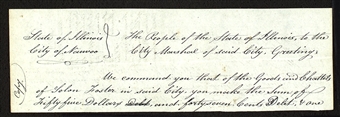 State of Illinois } The People of the State of Illinois, to the
City of Nauvoo } City Marshal of said City, Greeting.
We command you that of the Goods and Chattels
of Solon Foster in said City, you make the Sum of
Fifty five Dollars Debt, and forty seven Cents Debt, & one